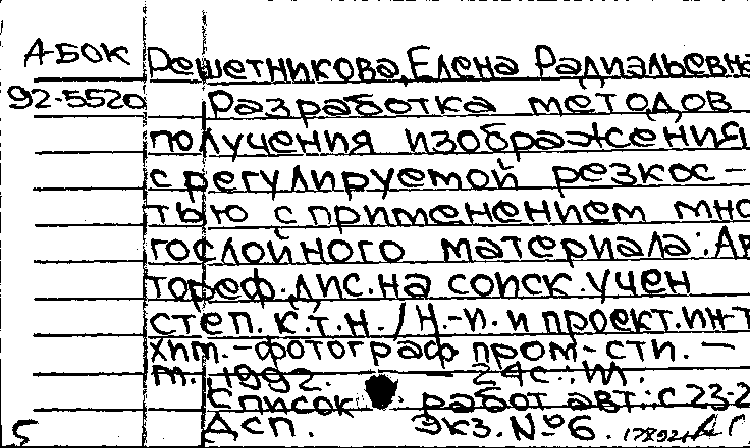 А-БОК
Решетникова, Елена Радиальевна
92-5520 Разработка методов
получения изображения
с регулируемой резкос-
тью с применением мно
гослойного материала: Ав
тореф. дис. на соиск. учен
степ. к.т.н. / Н.-и. и проект. ин-т
хим.-фотограф. пром-сти. —
М., 1992. — 24с.: ил.
Список работ авт.: с 23-2
Дсп. Экз. №6.
5